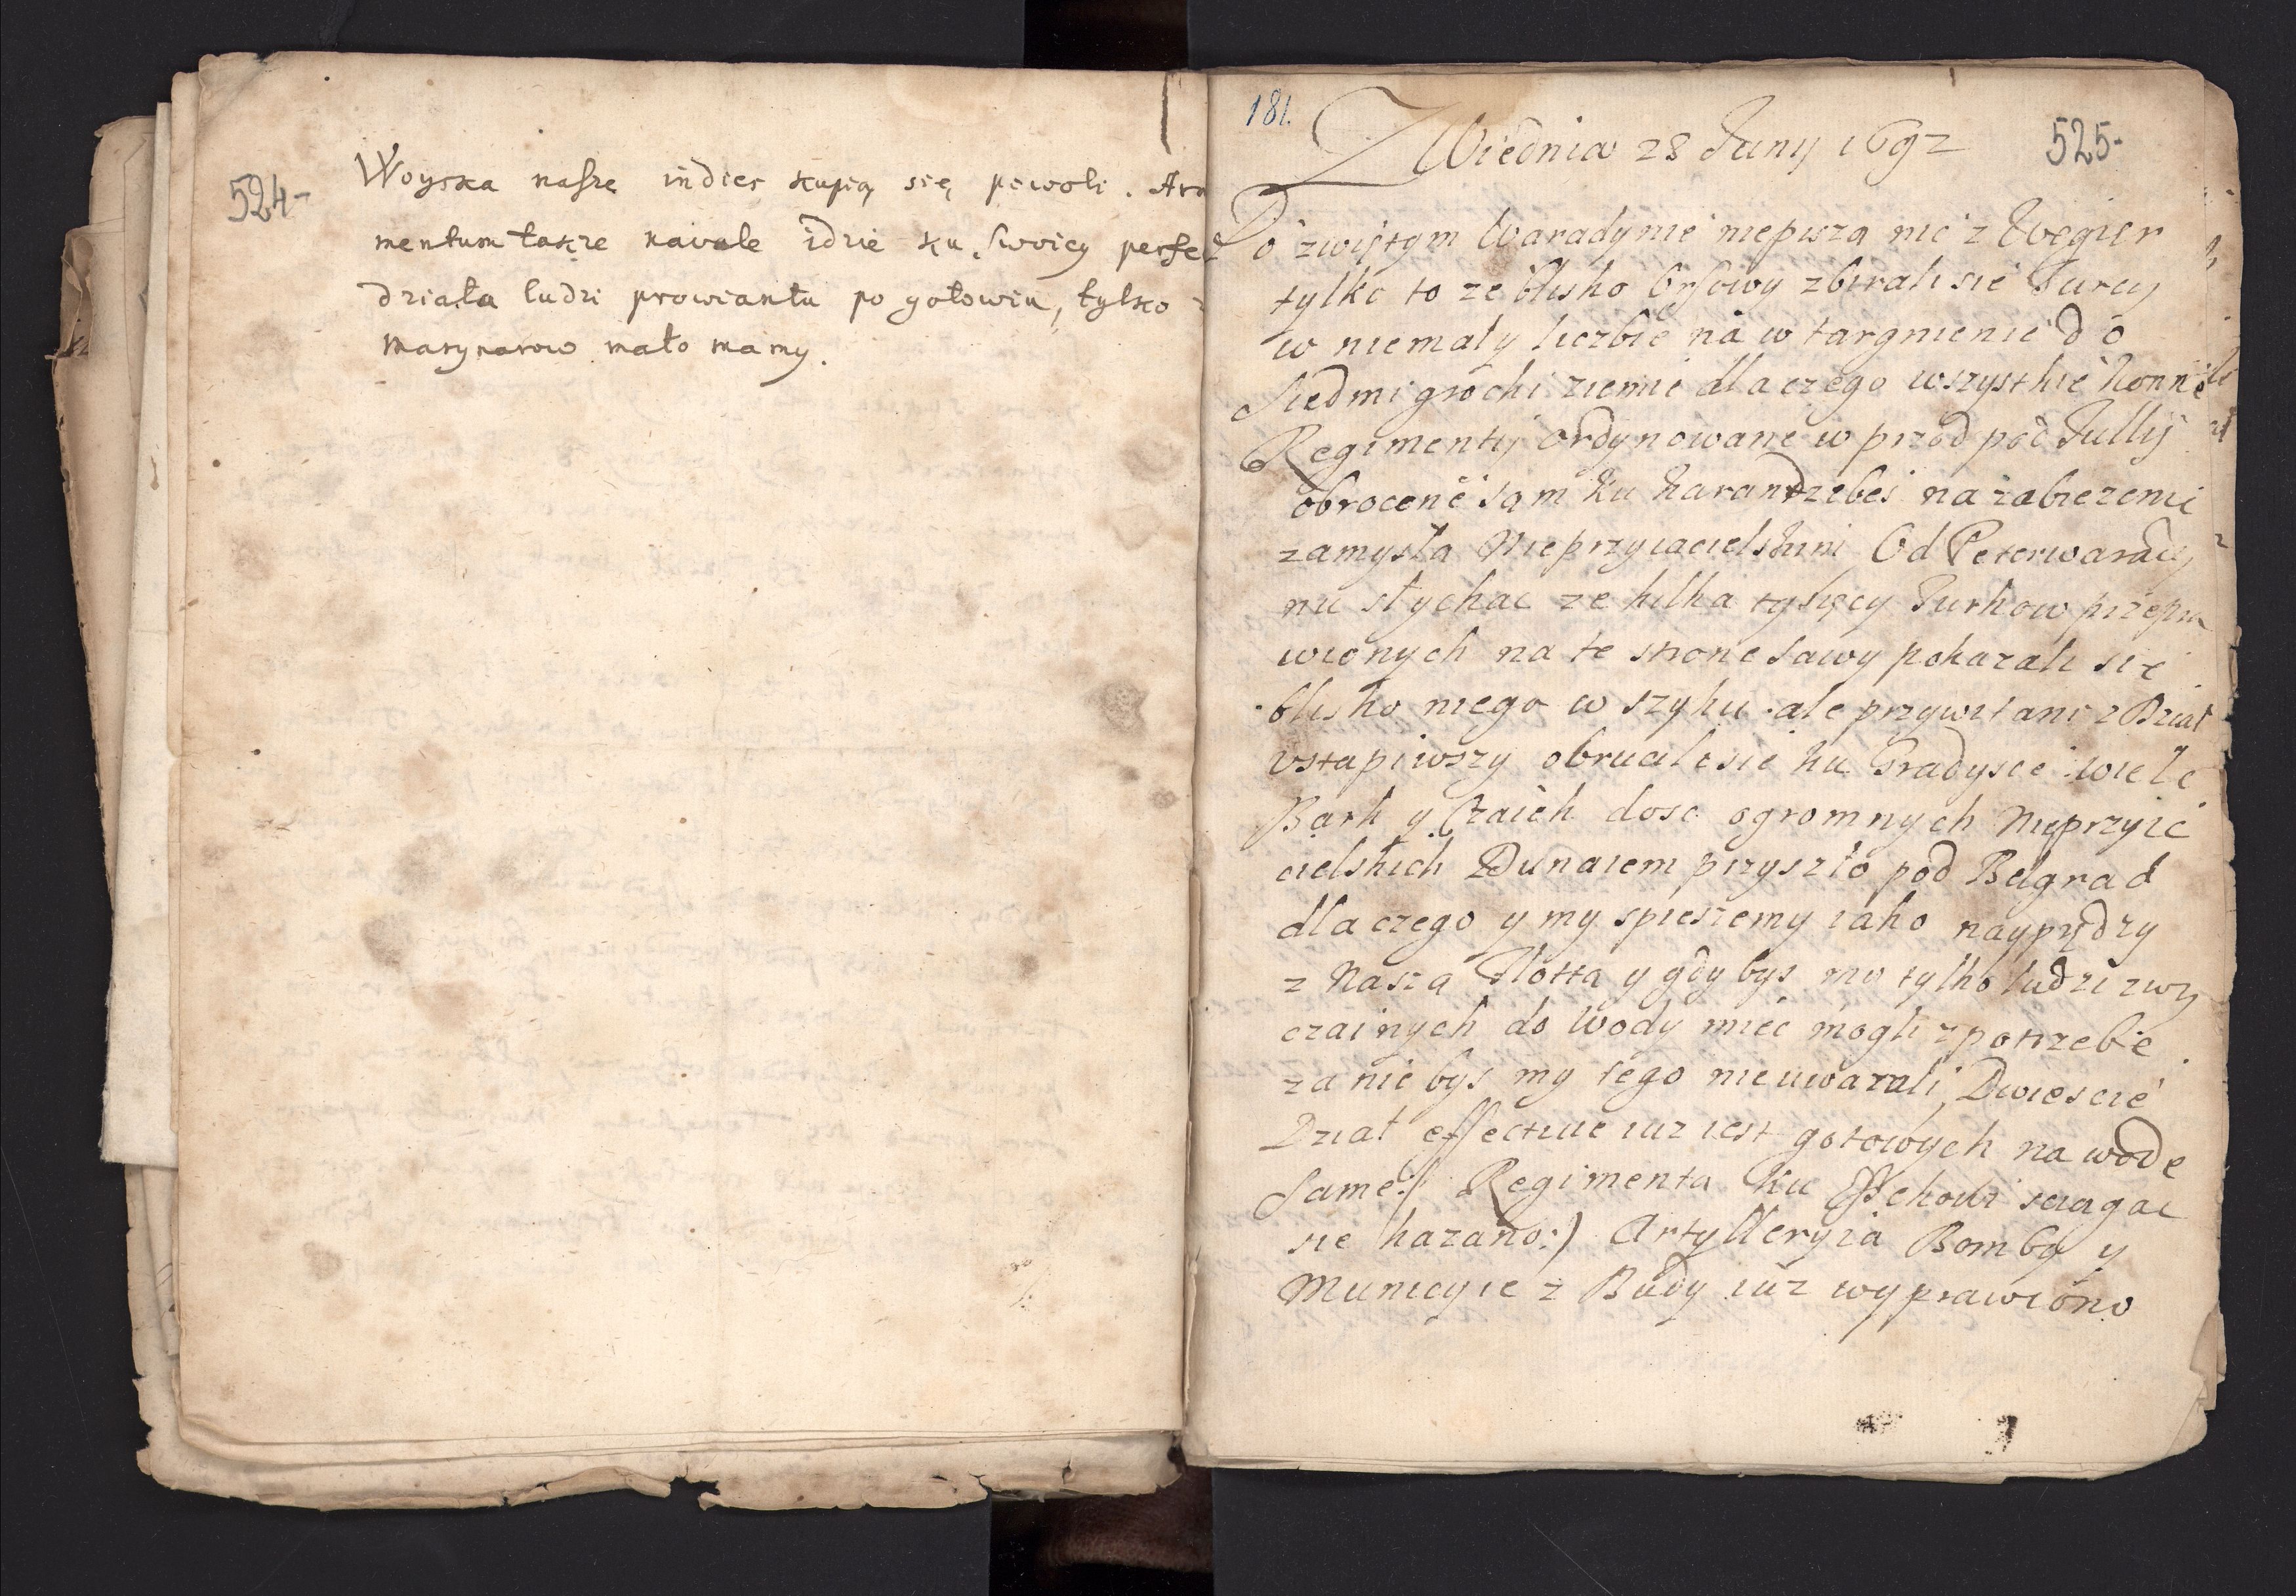 524-
Woyska nasze indies kupią się powoli. Ar
mentum także navale idzie ku swoicy perfec
działa ludzi prowiantu po gotowiu, tylko
marynarow mało mamy.
181.
525-
Z Wiednia 28 Juny 1692
O zwiętym Waradynie niepiszą nic z Węgier
tylko to ze blisko Orsowy zbirali sie Turcy
w niemały liczbie na wtargnienie do
Siedmigrochi ziemie dla czego wszystkie konne
Regimenty ordynowane w przod pod Jully
obrocene są m ku Karandzebes na zabiezenie
zamysła Nieprzyiacielskim Od Peterwarady
nu słychac ze kilka tysięcy Turkow przepra
wionych na te strone Sawy pokazali się
blisko niego w szyku ale przywitani z Dział
vstapiwszy obrucili sie ku Gradysce wiele
Bark y Czaiek dosc ogromnych Nieprzyie
cielskich Dunaiem przyszło pod Belgrad
dla czego y my spieszemy iako nayprędzy
z Naszą Flottą y gdy bys my tylko ludzi zwy
czainych do Wody miec mogli z potrzebe
za nic bys my tego nieuwazali, Dwiescie
Dział effective iuz iest gotowych na wode
same:/ Regimenta ku Essekowi sciagac
sie kazano:) Artylleryia Bomby y
Municyie z Budy iuz wyprawiono